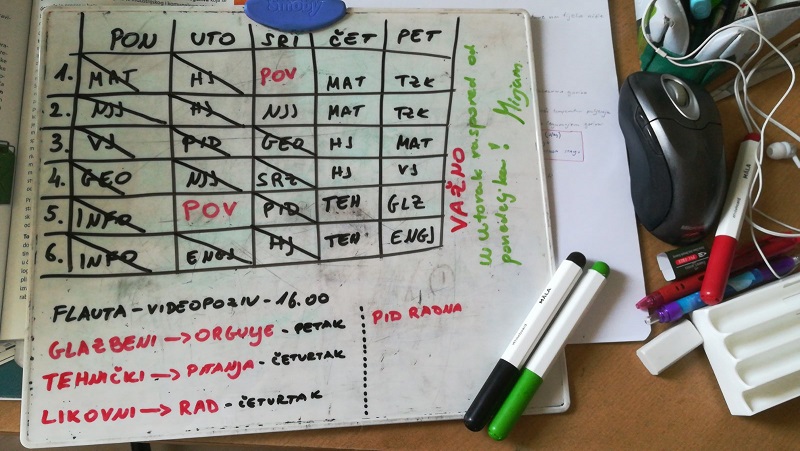 PON UTO SRI ČET PET
1. MAT HJ POV MAT TZK
2. NJJ HJ NJJ MAT TZK
3. VJ PID GEO HJ MAT
4. GEO NJJ SRZ HJ VJ
5. INFO POV PID TEH GLZ
6. INFO ENGJ HJ TEH ENGJ
VAŽNO
U utorak raspored od
ponedjeljka! Mirjam
FLAUTA - VIDEOPOZIV - 16.00
GLAZBENI → ORGULJE - PETAK
TEHNIČKI → PITANJA - ČETVRTAK
LIKOVNI → RAD - ČETVRTAK
PID RADNA
MÅLA
MÅLA